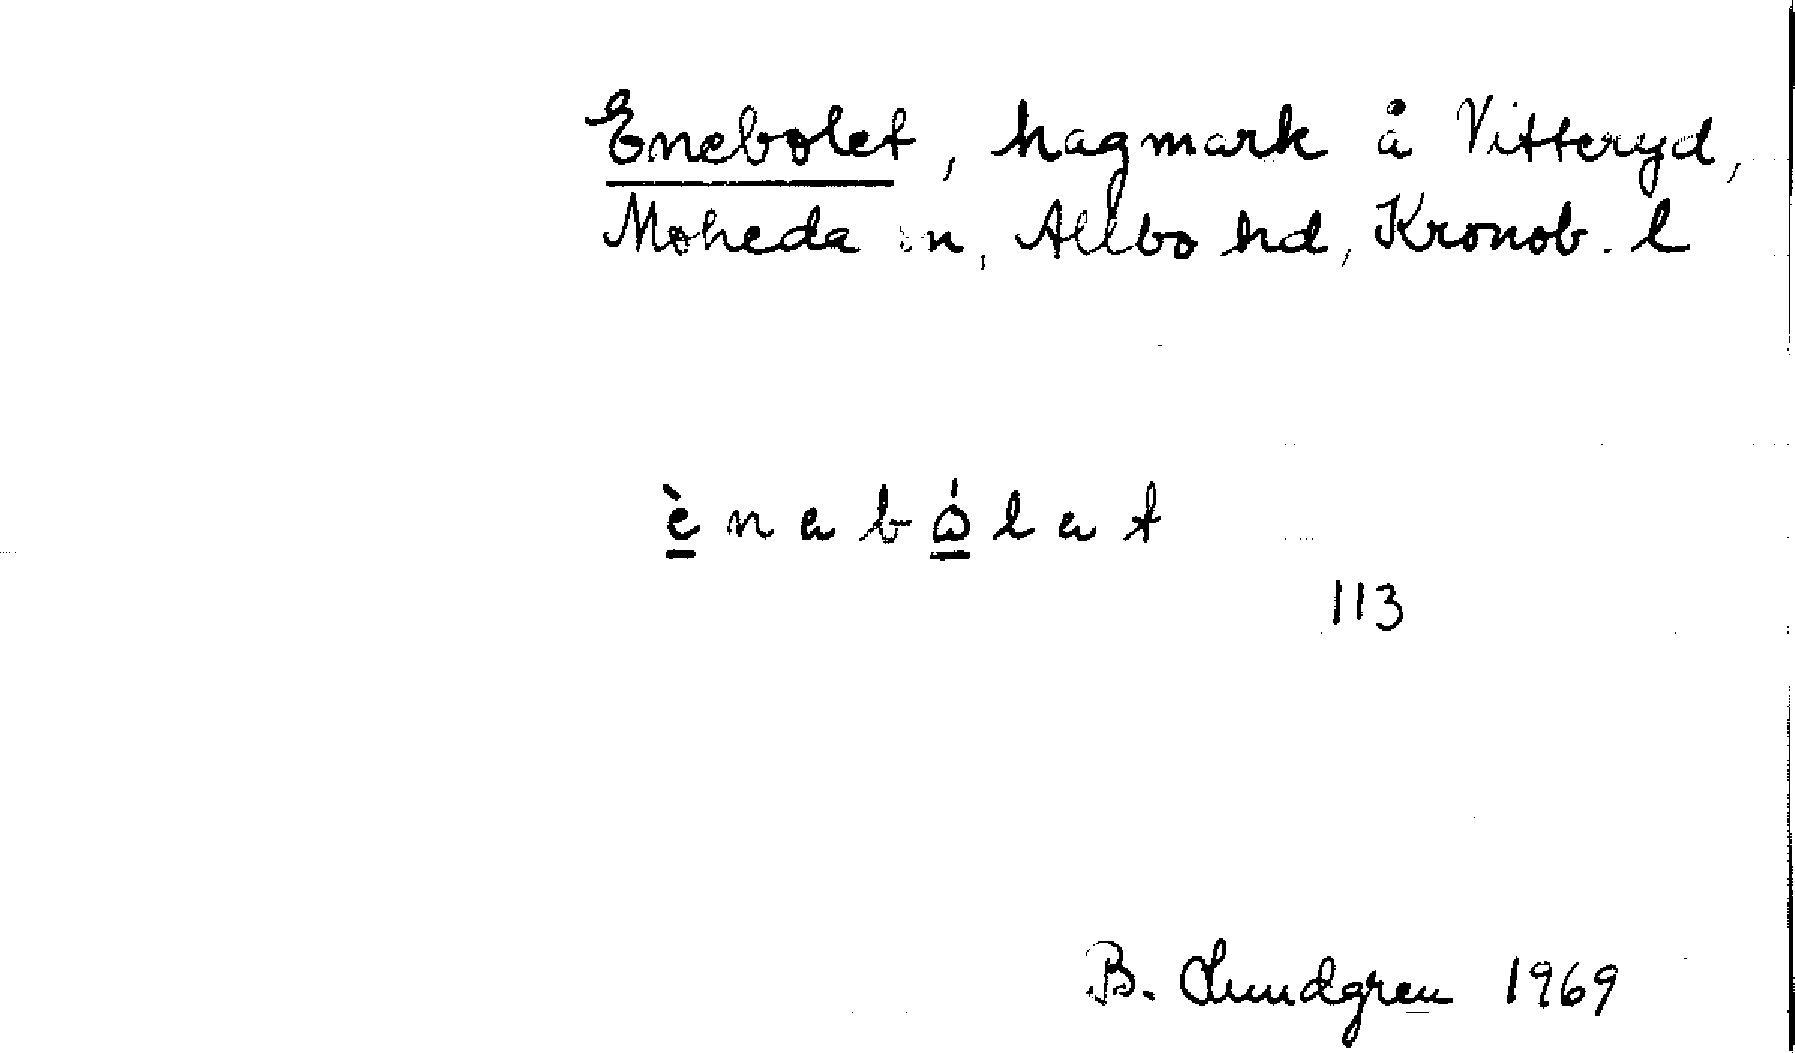 Enebolet, hagmark å Vitteryd,
Moheda sn, Allbo hd, Kronob. l
113
B. Lundgren 1969